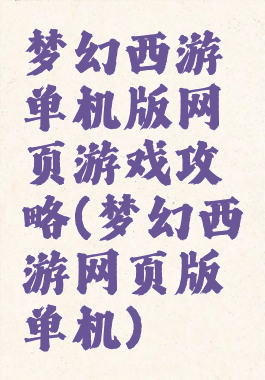 梦幻西游
单机版网
页游戏攻
略(梦幻西
游网页版
单机)